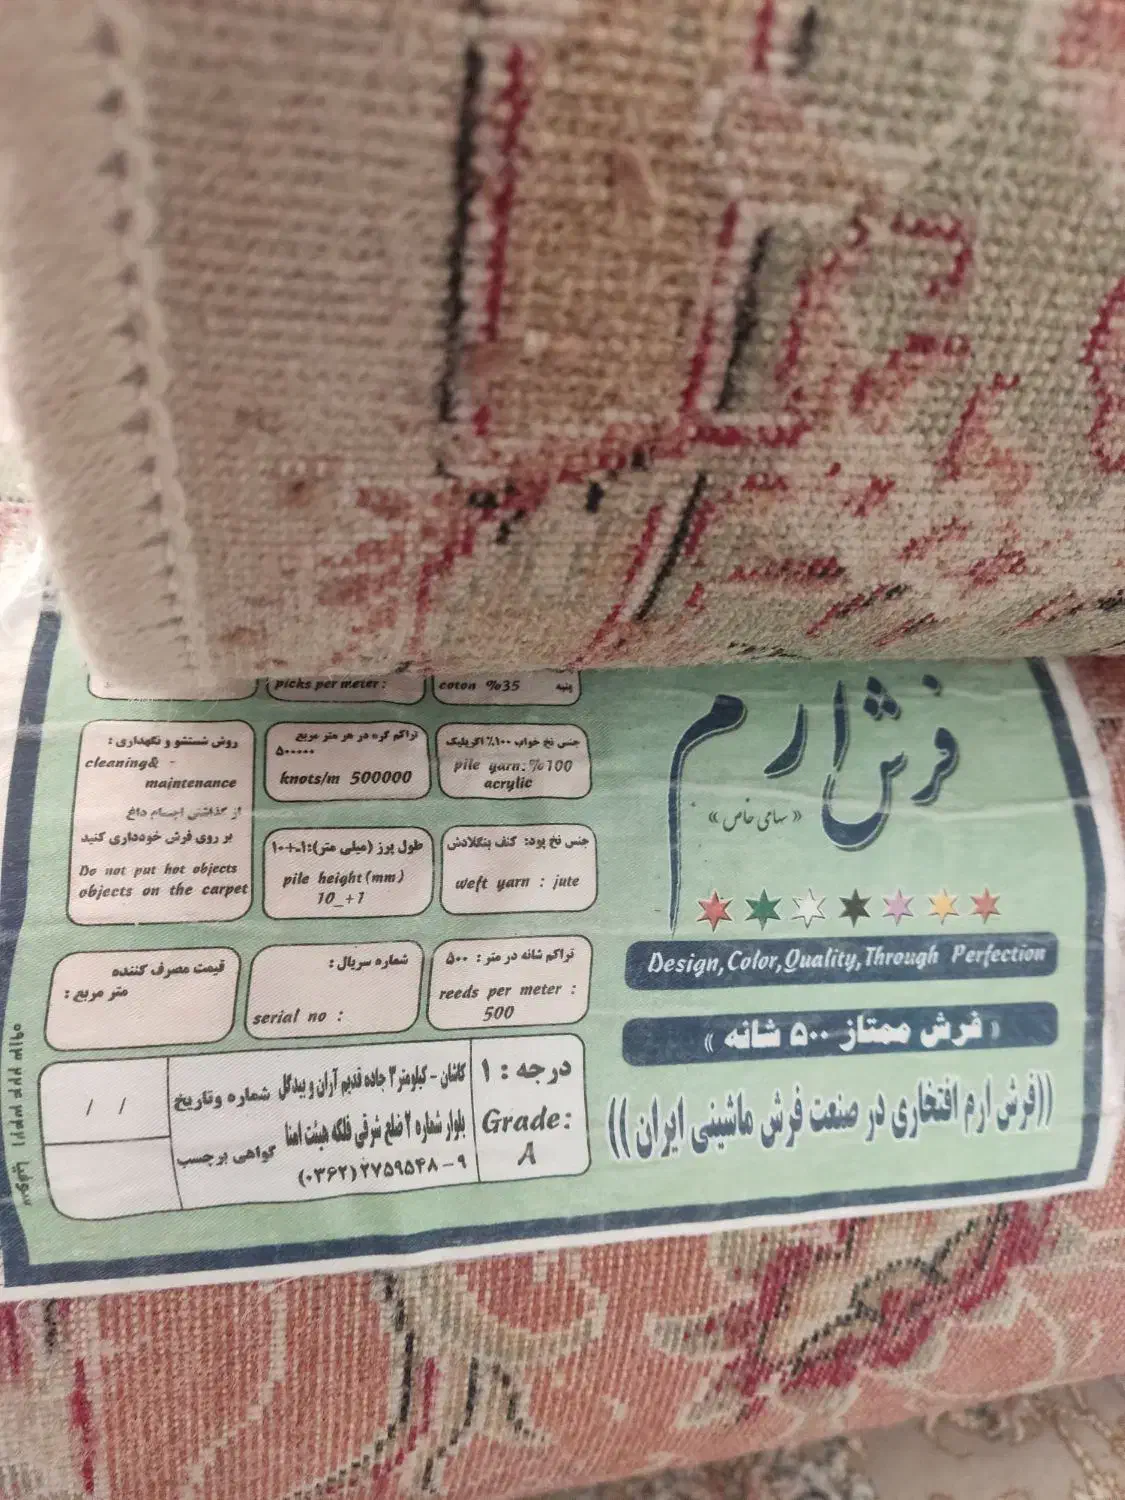 فرش ارم
« سهامی خاص »
Design,Color,Quality,Through Perfection
« فرش ممتاز ۵۰۰ شانه »
((فرش ارم افتخاری در صنعت فرش ماشینی ایران))
پنبه
coton %35
picks per meter :
جنس نخ خواب ۱۰۰٪ اکریلیک
pile yarn: %100
acrylic
تراکم گره در هر متر مربع
۵۰۰۰۰۰
knots/m 500000
روش شستشو و نگهداری :
cleaning& -
maintenance
از گذاشتن اجسام داغ
بر روی فرش خودداری کنید
Do not put hot objects
objects on the carpet
جنس نخ پود: کنف بنگلادش
weft yarn : jute
طول پرز (میلی متر):۱-+۱۰
pile height(mm)
10_+1
تراکم شانه در متر : ۵۰۰
reeds per meter :
500
شماره سریال :
serial no :
قیمت مصرف کننده
متر مربع :
درجه : ۱
Grade:
A
کاشان - کیلومتر ۳ جاده قدیم آران و بیدگل
بلوار شماره ۲ ضلع شرقی فلکه هیئت امنا
(۰۳۶۲) ۲۷۵۹۵۴۸ - ۹
شماره وتاریخ
گواهی برچسب
/ /